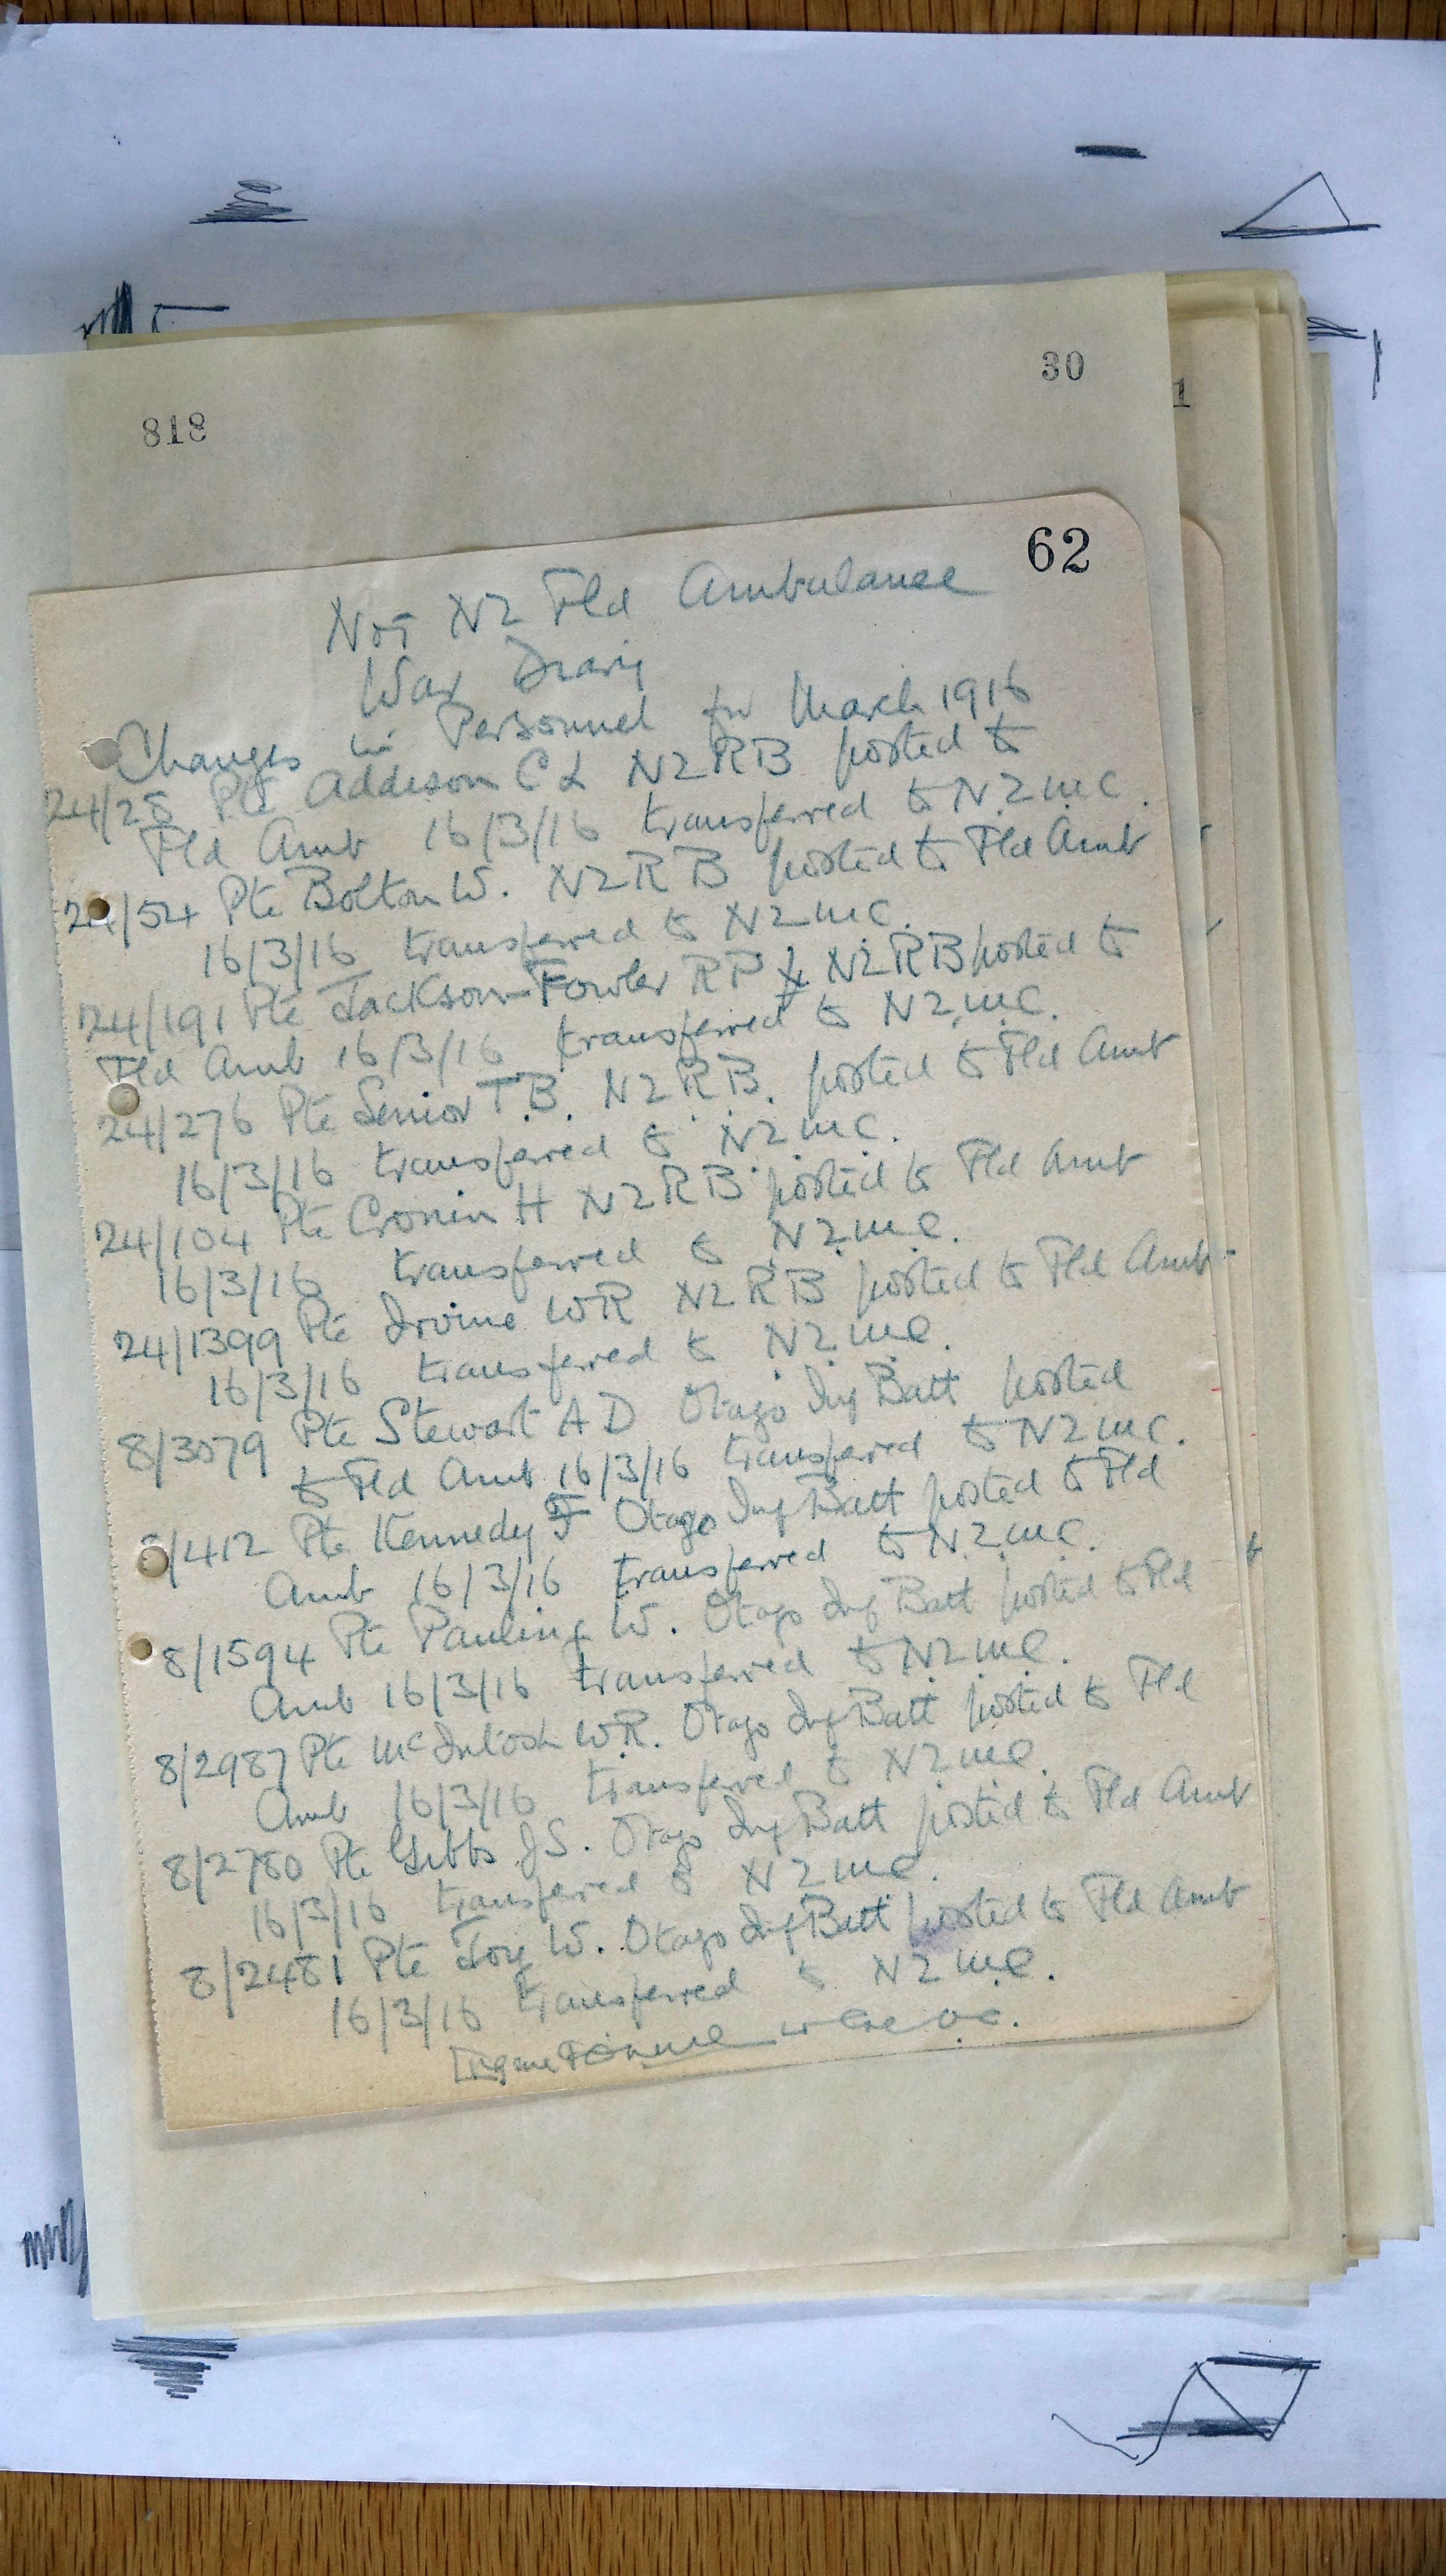 30
818
1
62
No 1 NZ Fld Ambulance
War Diary
Changes in Personnel for March 1916
24/28 Pte Addison C L NZRB posted to
Fld Amb 16/3/16 transferred to NZMC.
24/54 Pte Bolton W. NZRB posted to Fld Amb
16/3/16 transferred to NZMC.
24/191 Pte Jackson-Fowler RP NZRB posted to
Fld Amb 16/3/16 transferred to NZMC.
24/276 Pte Senior T.B. NZRB. posted to Fld Amb
16/3/16 transferred to NZMC.
24/104 Pte Cronin H NZRB posted to Fld Amb
16/3/16 transferred to NZMC.
24/1399 Pte Irvine WR NZRB posted to Fld Amb
16/3/16 transferred to NZMC.
8/3079 Pte Stewart A D Otago Inf Batt posted
to Fld Amb 16/3/16 transferred to NZMC.
/412 Pte Kennedy F Otago Inf Batt posted to Fld
Amb 16/3/16 transferred to NZMC.
8/1594 Pte Pauling W. Otago Inf Batt posted to Fld
Amb 16/3/16 transferred to NZMC.
8/2987 Pte McIntosh WR. Otago Inf Batt posted to Fld
Amb 16/3/16 transferred to NZMC.
8/2780 Pte Gibbs J S. Otago Inf Batt posted to Fld Amb
16/3/16 transferred to NZMC.
8/2481 Pte Joy W. Otago Inf Batt posted to Fld Amb
16/3/16 transferred to NZMC.